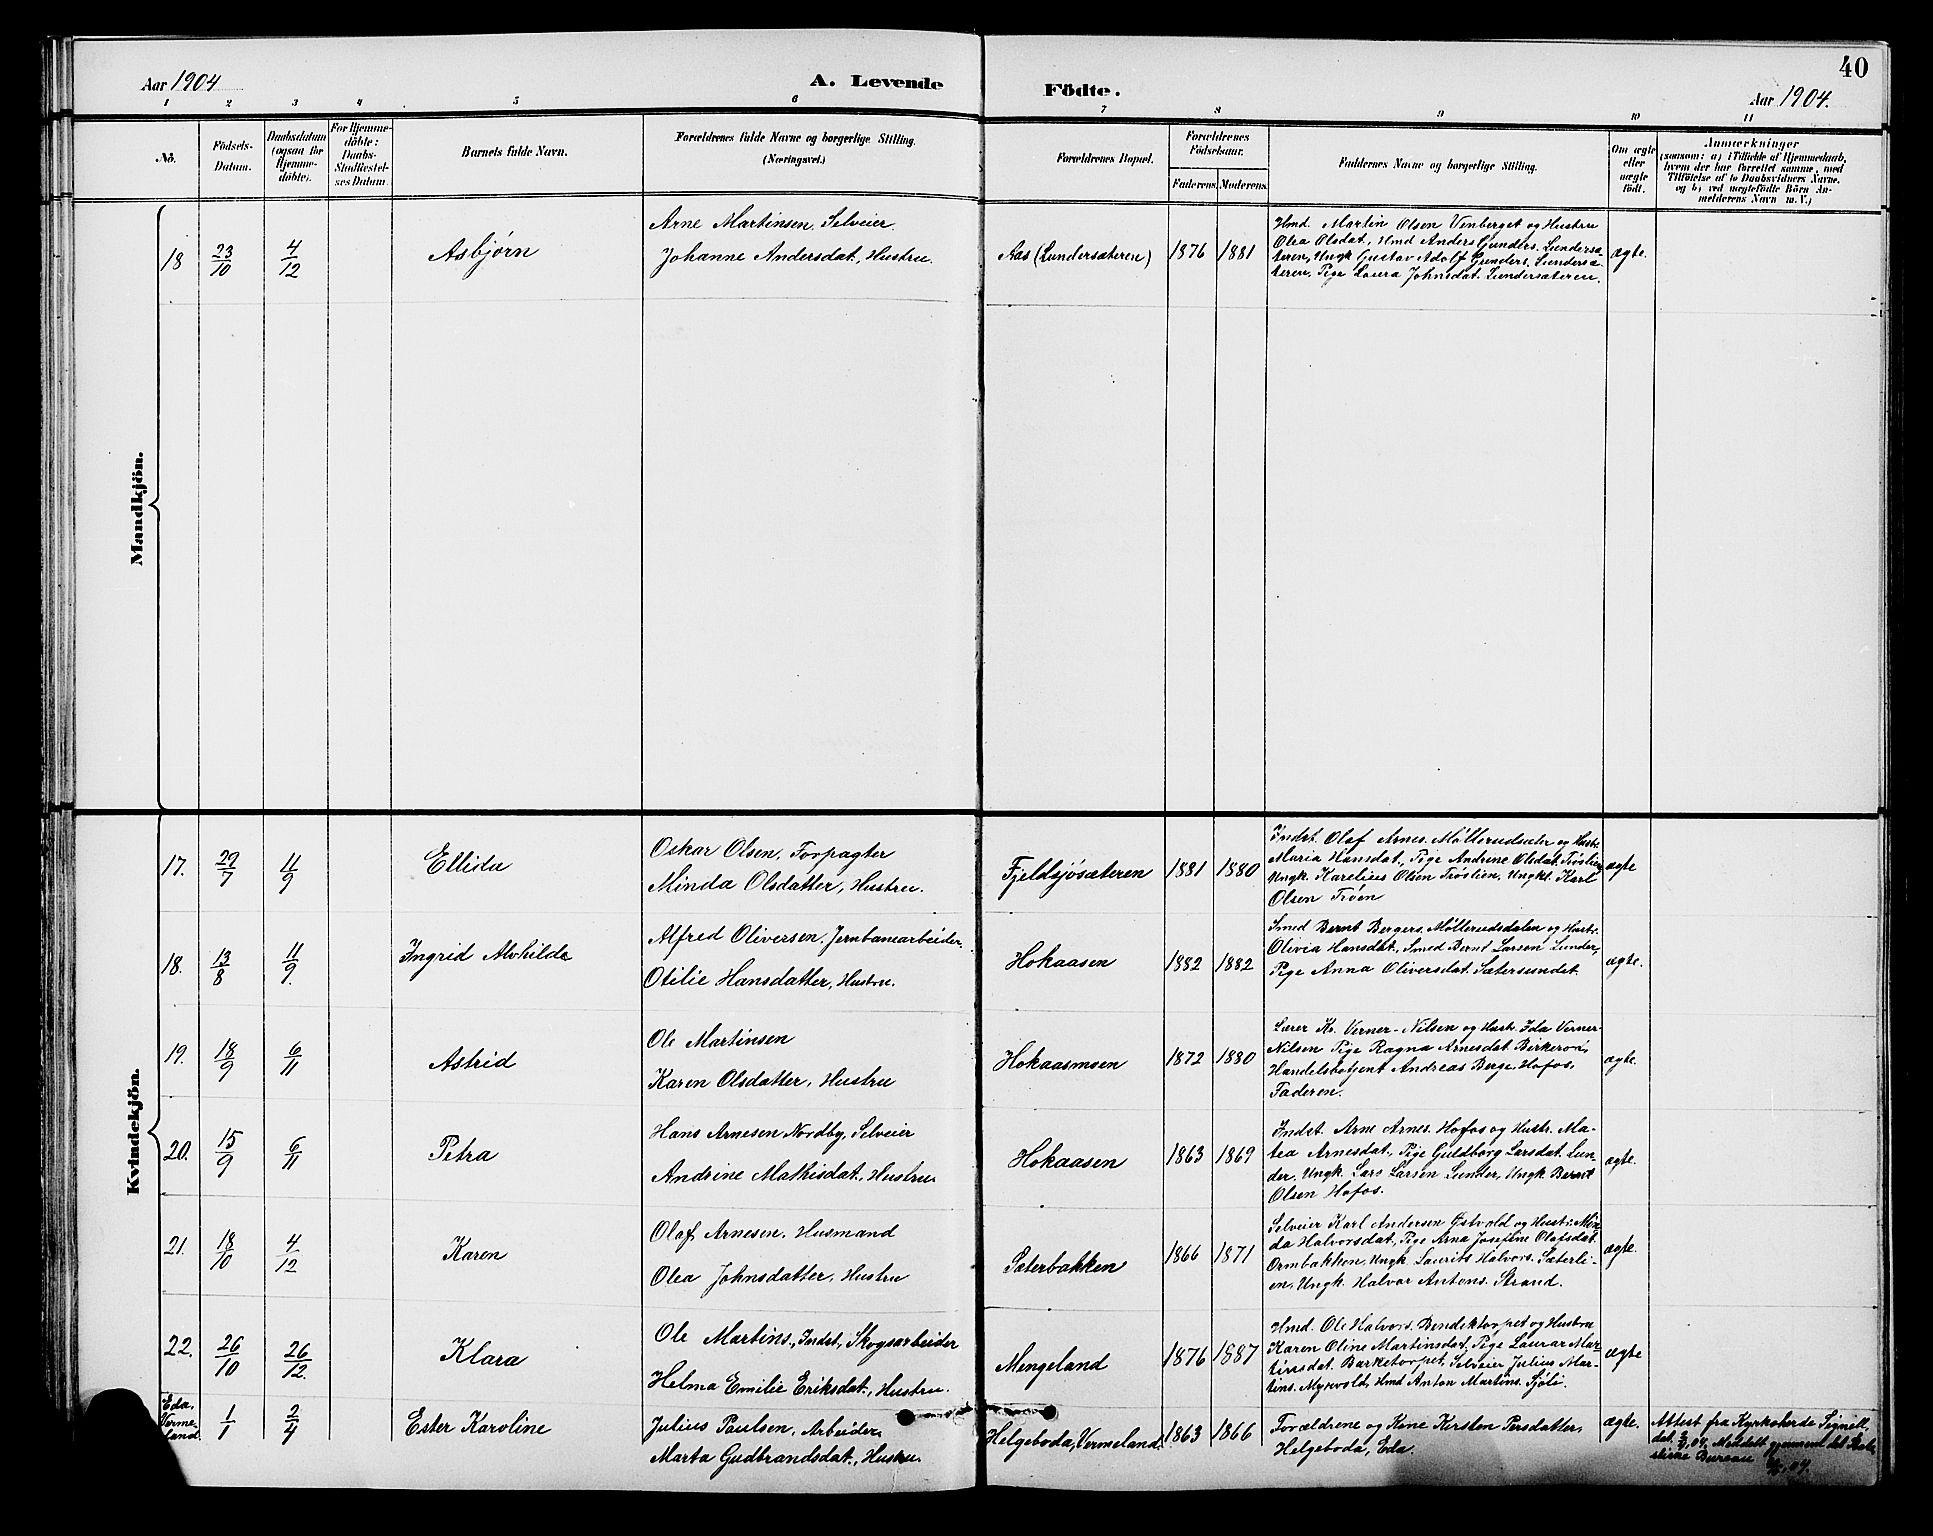 40
Aar 1904
A. Levende
Födte.
Aar 1904.
1 2 3 4 5 6 7 8 9 10 11
No.
Födsels-
Datum.
Daabsdatum
(ogsaa for
Hjemme-
döbte).
For Hjemme-
döbte:
Daabs-
Stadfæstel-
ses Datum.
Barnets fulde Navn.
Forældrenes fulde Navne og borgerlige Stilling.
(Næringsvei.)
Forældrenes Bopæl.
Forældrenes
Födselsaar.
Faderens. Moderens.
Faddernes Navne og borgerlige Stilling.
Om ægte
eller
uægte
födt.
Anmærkninger
(saasom: a) i Tilfælde af Hjemmedaab,
hvem der har forrettet samme, med
Tilföielse af to Daabsvidners Navne.
og b) ved uægtefödte Börn An-
melderens Navn m. V.)
Mandkjön.
18 23/10 4/12
Asbjørn
Arne Martinsen, Selveier
Johanne Andersdat, Hustru.
Aas (Lundersæteren)
1876 1881
Hmd. Martin Olsen Venberget og Hustru
Olea Olsdat, Hmd Anders Gunders. Lundersæ-
teren, Ungk Gustav Adolf Gunders. Lundersæ-
teren, Pige Laura Johnsdat. Lundersæteren.
ægte.
Kvindekjön.
17. 27/7 11/9
Ellida
Oskar Olsen, Forpagter
Minda Olsdatter, Hustru.
Fjeldsjøsæteren
1881 1880
Indst. Olaf Arnes. Møllerudsæter og Hustr.
Maria Hansdat, Pige Andrine Olsdat Trøslien,
Ungk. Karelius Olsen Trøslien, Ungkl. Karl
Olsen Trøen
ægte
18. 13/8 11/9.
Ingrid Alvhilde
Alfred Oliversen, Jernbanearbeider.
Otilie Hansdatter, Hustru.
Hokaasen
1882 1882
Smed Bernt Bergers. Møllerudsdalen og Hustr.
Olivia Hansdat, Smed Bernt Larsen Lunder,
Pige Anna Oliversdat. Sætersundet.
ægte.
19. 18/9 6/11
Astrid
Ole Martinsen
Karen Olsdatter, Hustru
Hokaasmoen
1872 1880
Lærer Kr. Verner-Nilsen og Hustr. Ida Verner-
Nilsen Pige Ragna Arnesdat Birkeroa,
Handelsbetjent Andreas Berge, Hofos,
Faderen.
ægte.
20. 15/9 6/11
Petra
Hans Arnesen Nordby, Selveier
Andrine Mathisdat, Hustru.
Hokaasen
1863 1869
Indst. Arne Arnes. Hofos og Hustr. Ma-
tea Arnesdat, Pige Guldborg Larsdat. Lun-
der, Ungk. Lars Larsen Lunder, Ungk Bernt
Olsen Hofos.
ægte.
21. 18/10 4/12
Karen
Olaf Arnesen, Husmand
Olea Johnsdatter, Hustru
Sæterbakken
1866 1871
Selveier Karl Andersen Østvold og Hustr. Min-
da Halvorsdat, Pige Arna Josefine Olafsdat
Ormbakken, Ungk. Laurits Halvors. Sæterli-
en, Ungk. Halvor Antons. Strand.
ægte.
22. 26/10 26/12.
Klara
Ole Martins., Indst., Skogsarbeider
Helma Emilie Eriksdat., Hustru.
Mengeland
1876 1887
Hmd. Ole Halvors. Bendiktorpet og Hustru
Karen Oline Martinsdat, Pige Laura Mar-
tinsdat. Barketorpet, Selveier Julius Mar-
tins. Myrvold, Hmd Anton Martins. Sjøli.
ægte
Eda,
Verme-
land. 1/1 2/4
Ester Karoline
Julius Paulsen, Arbeider,
Marta Gudbrandsdat., Hustru.
Helgeboda, Vermeland.
1863 1866
Forældrene og Kone Kirsten Persdatter,
Helgeboda, Eda.
ægte.
Attest fra Kyrkoherde Signell,
dat. 04. Meddelt gjennem det Stati-
stiske Bureau 04.